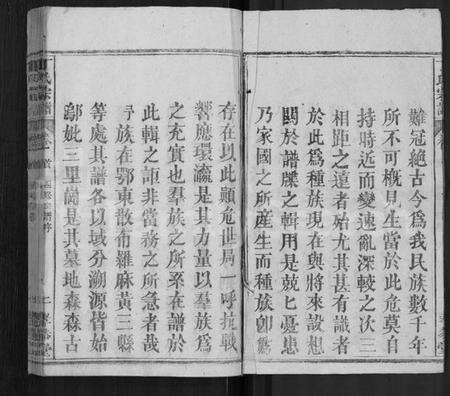 難冠絕古今爲我民族數千年
所不可概見生當於此危莫自
持時近而變速亂深較之次三
相距之遠者始尤其甚有識者
於此爲種族現在與將來設想
關於譜牒之輯用是兢匕憂患
乃家國之所產生而種族卽繫
存在以此顚危世局一呼抗戰
響應環瀛是其力量以羣族爲
之充實也羣族之所系在譜於
此輯之詎非當務之所急者哉
族在鄂東散布羅麻黃三縣
等處其譜各以域分溯源皆始
鄔妣三里崗是其墓地森森古